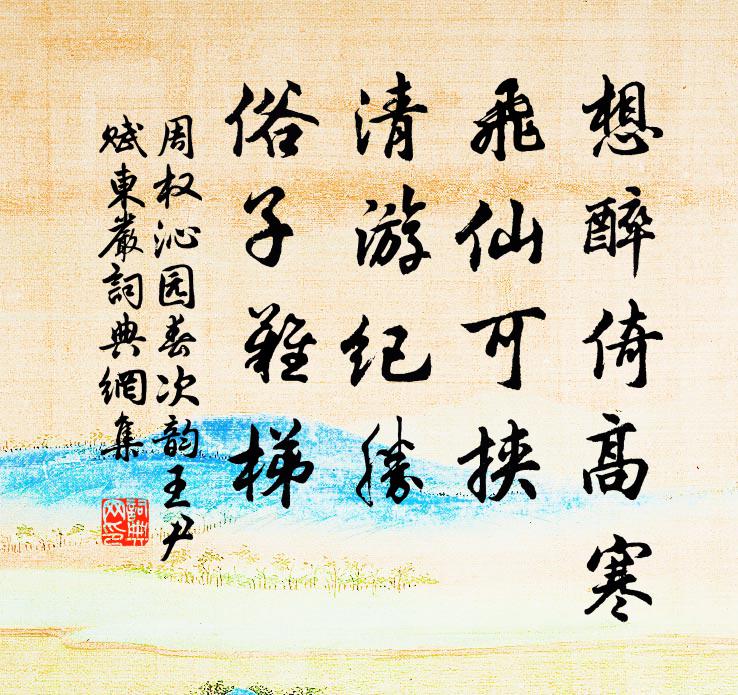 想醉倚高寒
飛仙可挾
清游紀勝
俗子難梯
周权沁园春次韵王尹
赋東嚴詞典網集
詞典網印